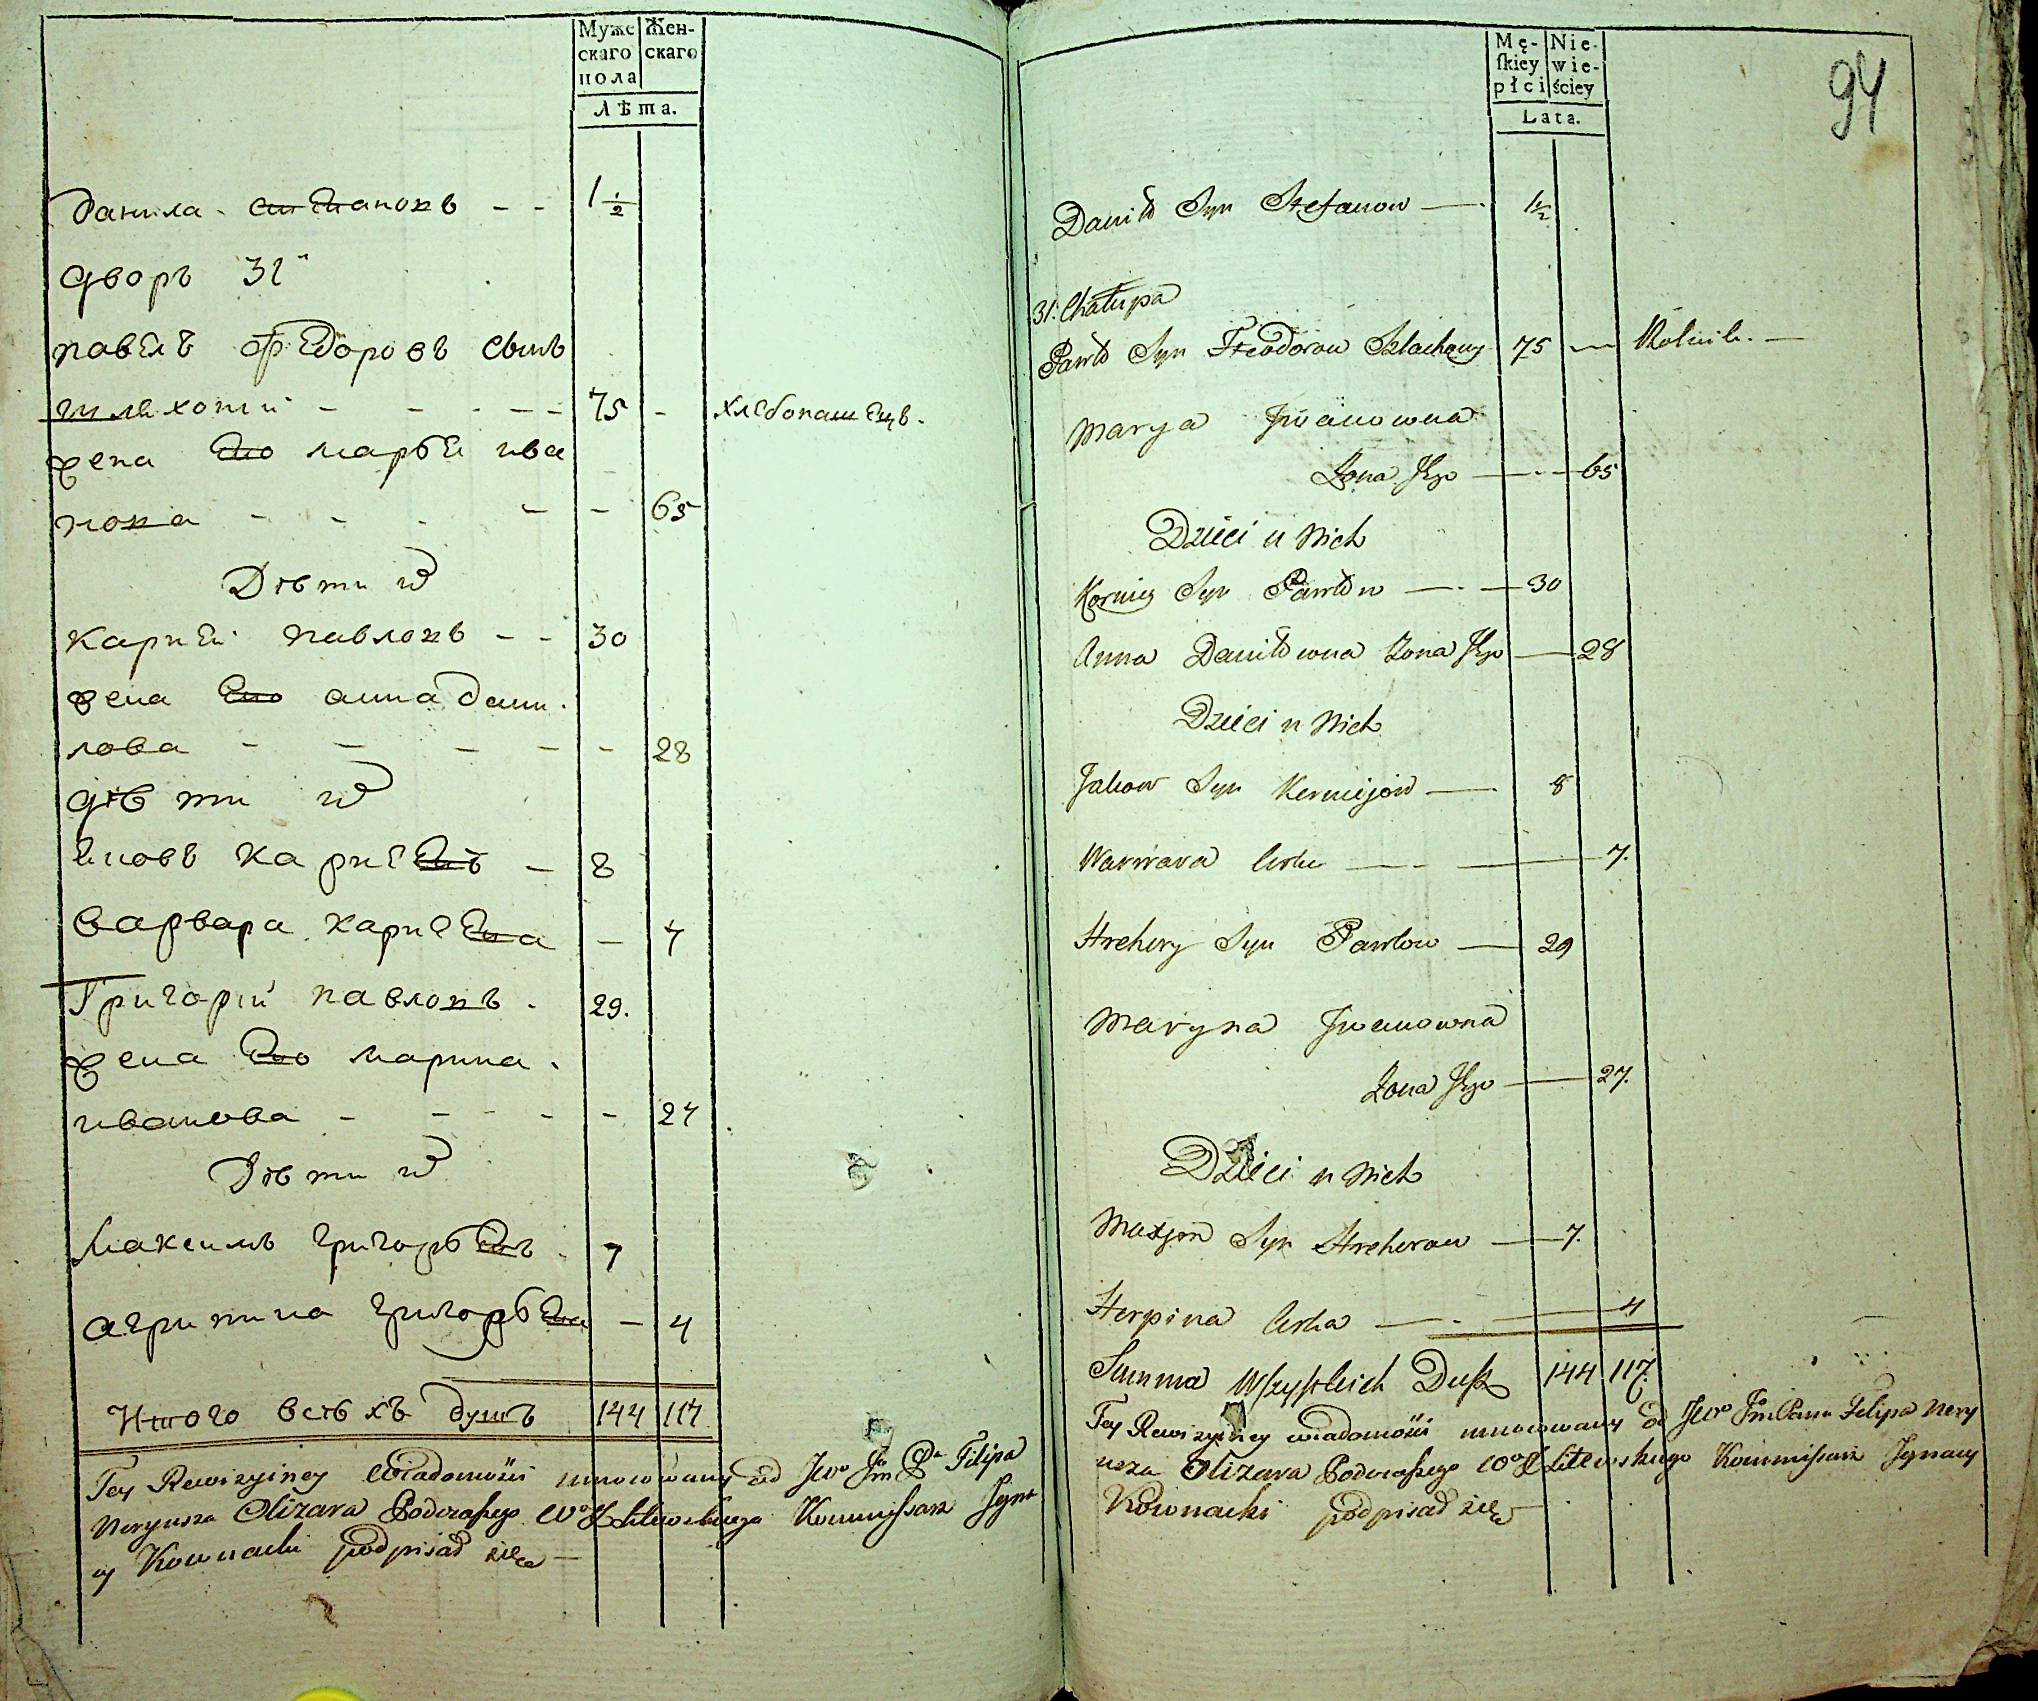 Муже
скаго
пола
Жен-
скаго
Лѣта.
Данила степановъ - - 1 1/2
дворъ 31
павелъ федоровъ сынъ
шляхотий - - - - - 75 - хлебопашецъ.
жена ево марья ива
нова - - - - - 65
Дѣти
Карней павловъ - - 30
жена ево анна дани
лова - - - - - 28
дѣти
яковъ карнеевъ - 8
варвара карнеева - 7
Григорий павловъ . 29.
жена ево марина
иванова - - - - - 27
Дѣти
Максимъ григорьевъ 7
агрипина григорьева - 4
Итого всѣхъ душъ 144 117
Tey Rewizyiney wiadomości umocowany od JWo Jm Pa Filipa
Neryusza Olizara Podczaszego Wo X Litewskiego Kommissarz Jgna
cy Kownacki podpisał się —
Mę-
skiey
płci
Nie-
wie-
ściey
Lata.
94
Daniło Syn Stefanow — 1 1/2
31. Chałupa
Pawło Syn Fteodorow Szlachowy 75 — Rolnik. —
Marya Jwanowna
Żona Jego — — 65
Dzieci u Nich
Korniey Syn Pawłow — — 30
Anna Daniłowna Żona Jego — 28
Dzieci u Nich
Jakow Syn Kerniejow — 8
Warwara Corka — — 7.
Hrehory Syn Pawłow — 29
Maryna Jwanowna
Żona Jego — 27.
Dzieci u Nich
Maxym Syn Hrehorow — 7.
Herpina Corka — — 4
Summa Wszystkich Dusz 144 117.
Tey Rewizyiney wiadomości umocowany od JWo Jm Pana Filipa Nery
usza Olizara Podczaszego Wo X Litewskiego Kommissarz Jgnacy
Kownacki podpisał się —